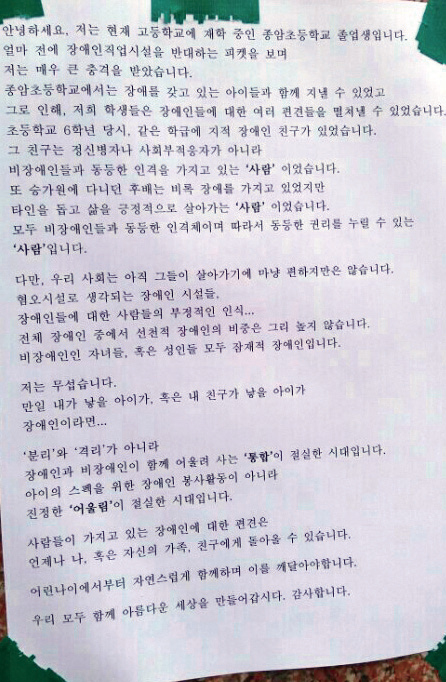 안녕하세요, 저는 현재 고등학교에 재학 중인 종암초등학교 졸업생입니다.
얼마 전에 장애인직업시설을 반대하는 피켓을 보며
저는 매우 큰 충격을 받았습니다.
종암초등학교에서는 장애를 갖고 있는 아이들과 함께 지낼 수 있었고
그로 인해, 저희 학생들은 장애인들에 대한 여러 편견들을 떨쳐낼 수 있었습니다.
초등학교 6학년 당시, 같은 학급에 지적 장애인 친구가 있었습니다.
그 친구는 정신병자나 사회부적응자가 아니라
비장애인들과 동등한 인격을 가지고 있는 '사람' 이었습니다.
또 승가원에 다니던 후배는 비록 장애를 가지고 있었지만
타인을 돕고 삶을 긍정적으로 살아가는 '사람' 이었습니다.
모두 비장애인들과 동등한 인격체이며 따라서 동등한 권리를 누릴 수 있는
'사람'입니다.
다만, 우리 사회는 아직 그들이 살아가기에 마냥 편하지만은 않습니다.
혐오시설로 생각되는 장애인 시설들,
장애인들에 대한 사람들의 부정적인 인식...
전체 장애인 중에서 선천적 장애인의 비중은 그리 높지 않습니다.
비장애인인 자녀들, 혹은 성인들 모두 잠재적 장애인입니다.
저는 무섭습니다.
만일 내가 낳을 아이가, 혹은 내 친구가 낳을 아이가
장애인이라면...
'분리'와 '격리'가 아니라
장애인과 비장애인이 함께 어울려 사는 '통합'이 절실한 시대입니다.
아이의 스펙을 위한 장애인 봉사활동이 아니라
진정한 '어울림'이 절실한 시대입니다.
사람들이 가지고 있는 장애인에 대한 편견은
언제나 나, 혹은 자신의 가족, 친구에게 돌아올 수 있습니다.
어린나이에서부터 자연스럽게 함께하며 이를 깨달아야합니다.
우리 모두 함께 아름다운 세상을 만들어갑시다. 감사합니다.